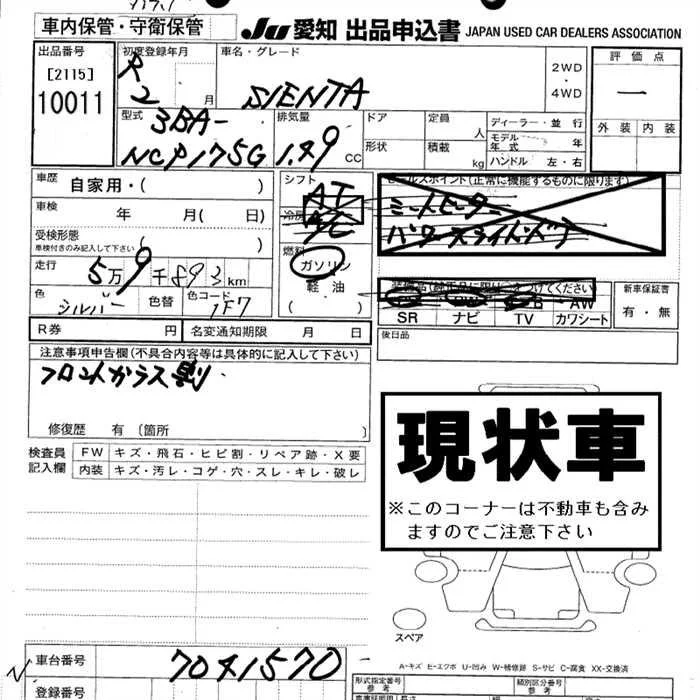 車内保管・守衛保管
JU 愛知 出品申込書 JAPAN USED CAR DEALERS ASSOCIATION
出品番号
[2115]
10011
初度登録年月
R
2 月
車名・グレード
SIENTA
2WD
・
4WD
評価点
一
外装 内装
型式
3BA-
NCP175G
排気量
1.49 CC
ドア
形状
定員 人
積載 kg
ディーラー・並行
モデル年式 年
ハンドル 左・右
車歴 自家用・( )
車検 年 月( 日)
受検形態
車検付きのみ記入して下さい ( )
走行 5万9千893km
色 シルバー 色替 色コード 1F7
シフト
AT
冷房
A/C
燃料
ガソリン
軽油
( )
セールスポイント(正常に機能するものに限ります)
SR ナビ TV カワシート
AW
新車保証書
有・無
R券 円 名変通知期限 月 日
後日品
注意事項申告欄(不具合内容等は具体的に記入して下さい)
フロントガラス割
修復歴 有 〔箇所 〕
検査員
記入欄
FW キズ・飛石・ヒビ割・リペア跡・X要
内装 キズ・汚レ・コゲ・穴・スレ・キレ・破レ
現状車
※このコーナーは不動車も含み
ますのでご注意下さい
スペア
A-キズ E-エクボ U-凹み W-補修跡 S-サビ C-腐食 XX-交換済
車台番号 7041570
登録番号
形式指定番号
参考
類別区分番号
参考